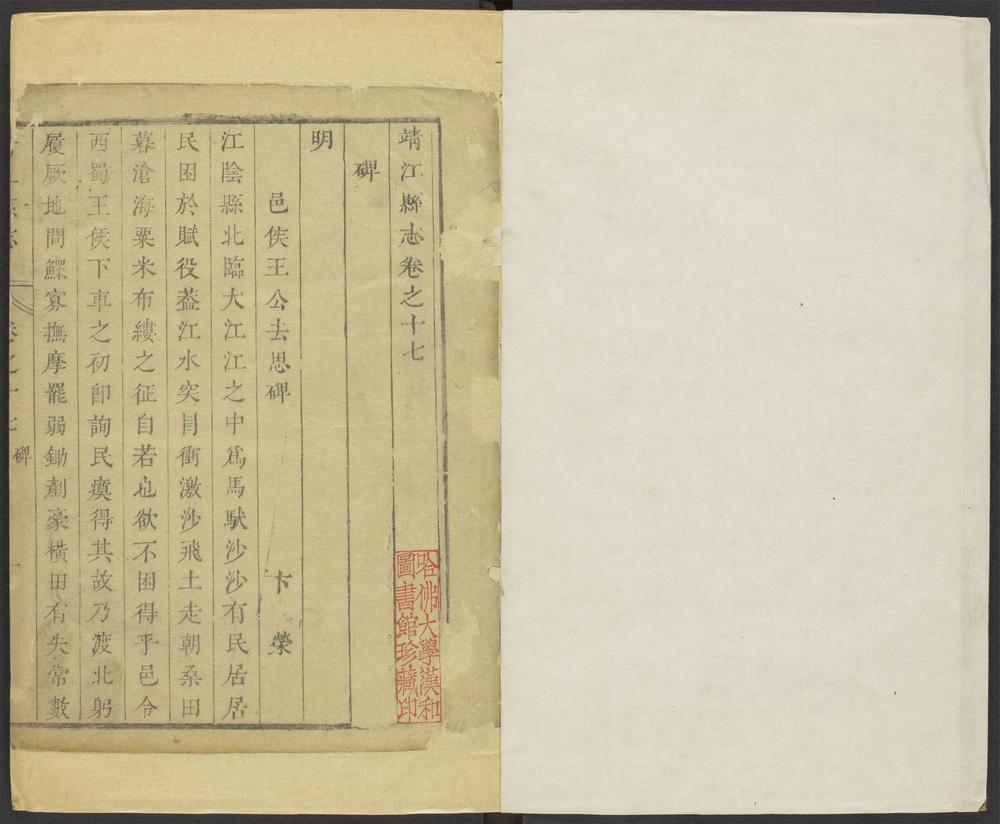 靖江縣志卷之十七
碑
明
邑侯王公去思碑 卞榮
江陰縣北臨大江江之中爲馬馱沙沙有民居居
民困於賦役葢江水突冐衝激沙飛土走朝桑田
暮滄海粟米布縷之征自若也欲不困得乎邑令
西蜀王侯下車之初卽詢民瘼得其故乃渡北躬
履厥地問鰥寡撫摩罷弱鋤剷豪橫田有失常數
卷之十七 碑
哈佛大學漢和
圖書館珍藏印